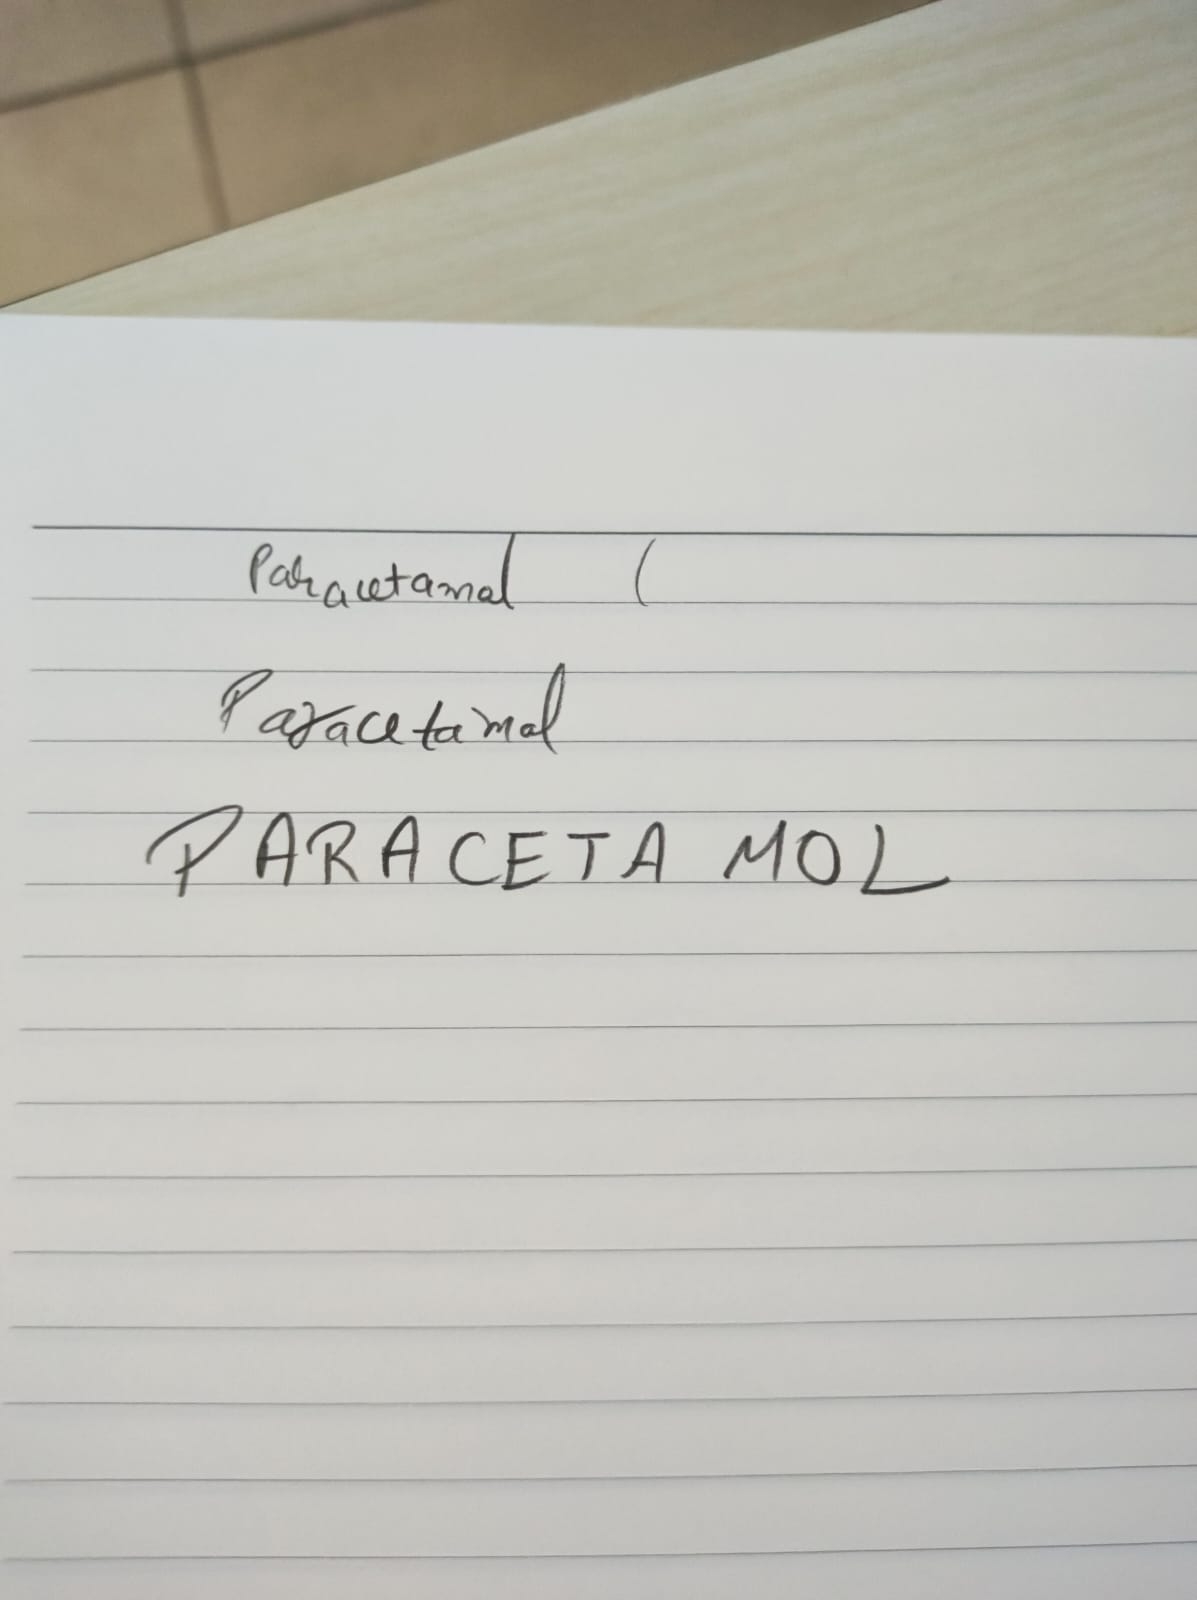 Paracetamol (
Paracetamol
PARACETAMOL